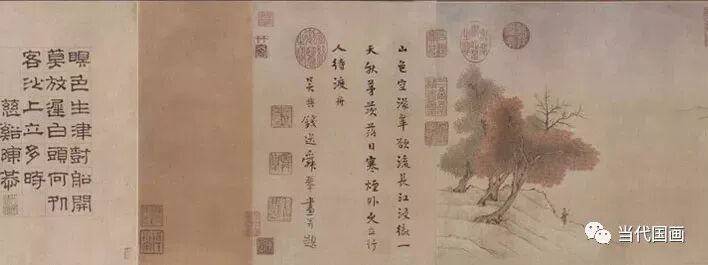 山色空濛翠欲流長江浸徹一
天秋茅茨落日寒煙外久立行
人待渡舟
吳興錢選舜舉畫并題
暝色生津對船開
莫放遲白頭何所
客沙上立多時
慈谿陳恭
当代国画